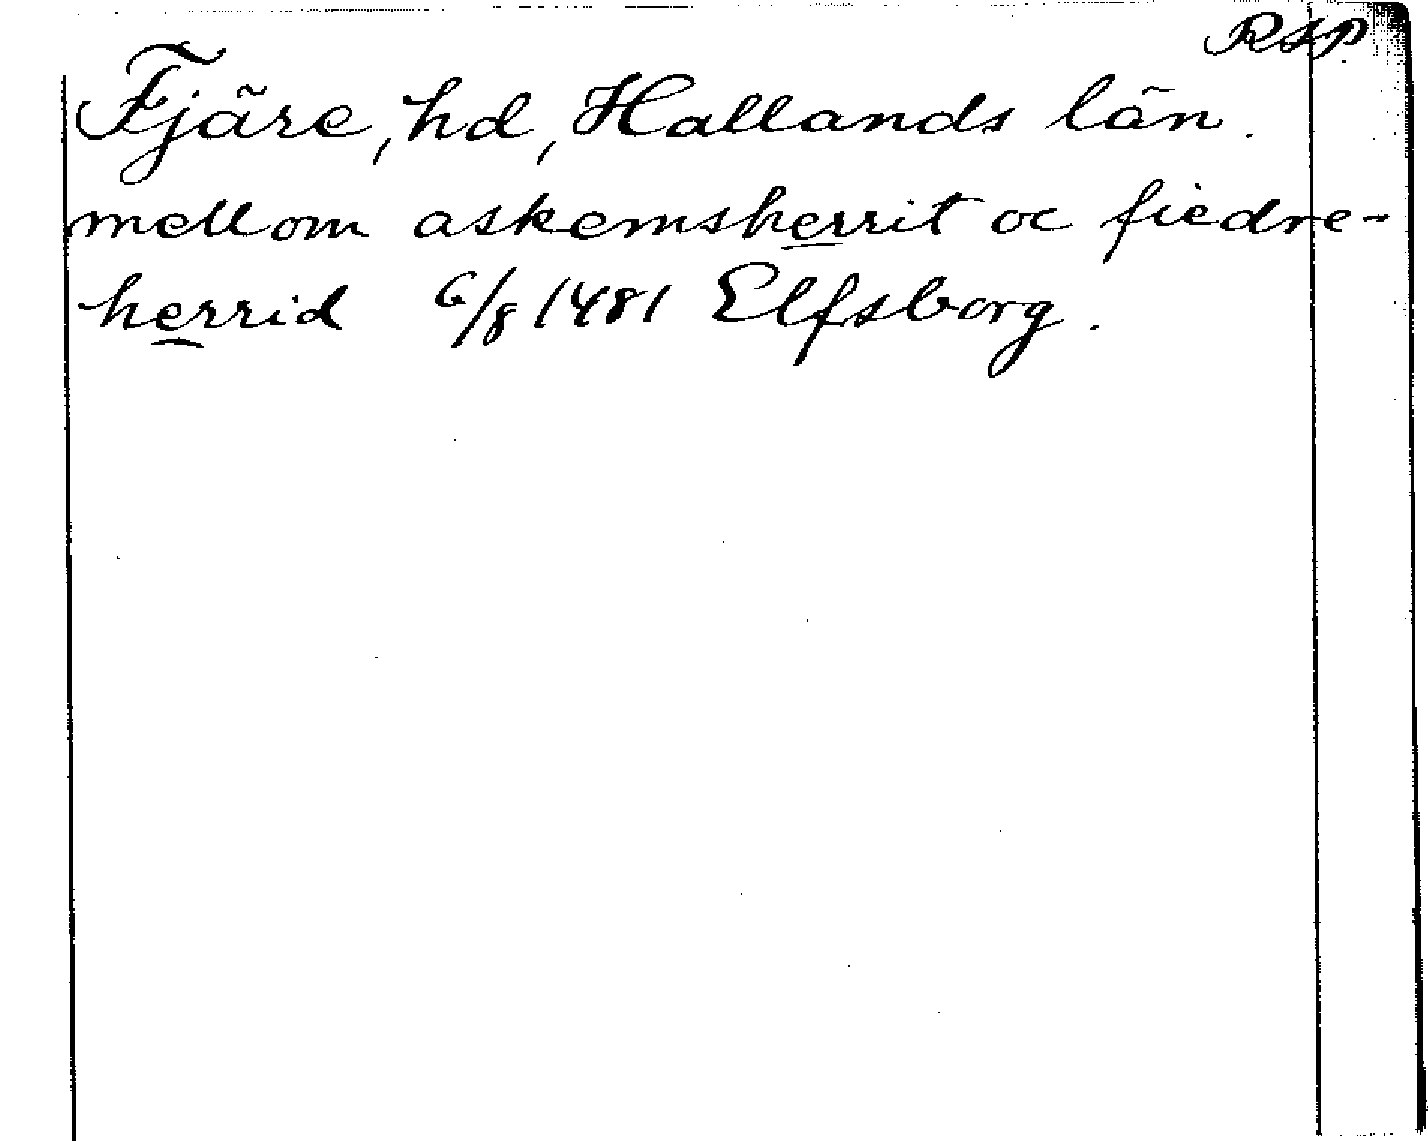 RSP.
Fjäre, hd, Hallands län.
mellom askemsherrit oc fiedre-
herrid 6/8 1481 Elfsborg.